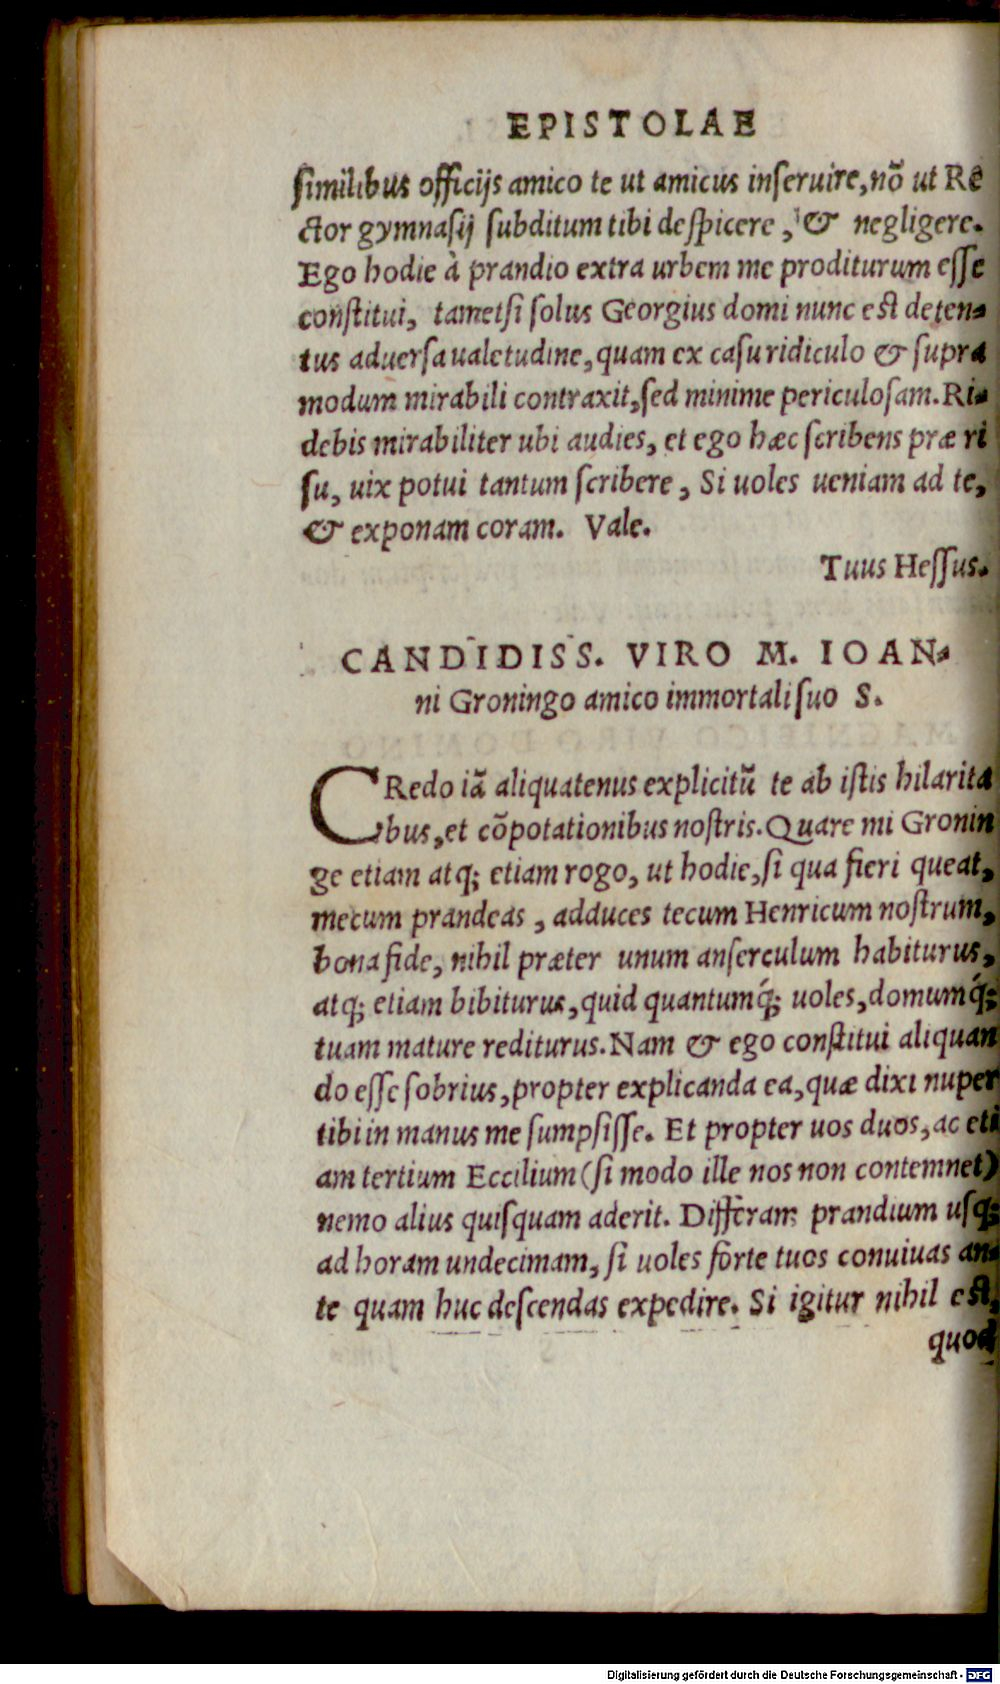 EPISTOLAE
similibus officijs amico te ut amicus inseruire, nõ ut Re
ctor gymnasij subditum tibi despicere, & negligere.
Ego hodie à prandio extra urbem me proditurum esse
constitui, tametsi solus Georgius domi nunc est deten-
tus aduersa ualetudine, quam ex casu ridiculo & supra
modum mirabili contraxit, sed minime periculosam. Ri-
debis mirabiliter ubi audies, et ego hæc scribens præ ri
su, uix potui tantum scribere, Si uoles ueniam ad te,
& exponam coram. Vale.
Tuus Hessus.
CANDIDISS. VIRO M. IOAN-
ni Groningo amico immortali suo S.
CRedo iã aliquatenus explicitũ te ab istis hilarita
bus, et cõpotationibus nostris. Quare mi Gronin
ge etiam atq; etiam rogo, ut hodie, si qua fieri queat,
mecum prandeas, adduces tecum Henricum nostrum,
bona fide, nihil præter unum anserculum habiturus,
atq; etiam bibiturus, quid quantumq́; uoles, domumq́;
tuam mature rediturus. Nam & ego constitui aliquan
do esse sobrius, propter explicanda ea, quæ dixi nuper
tibi in manus me sumpsisse. Et propter uos duos, ac eti
am tertium Eccilium (si modo ille nos non contemnet)
nemo alius quisquam aderit. Differam prandium usq;
ad horam undecimam, si uoles forte tuos conuiuas an-
te quam huc descendas expedire. Si igitur nihil est,
quod
Digitalisierung gefördert durch die Deutsche Forschungsgemeinschaft - DFG